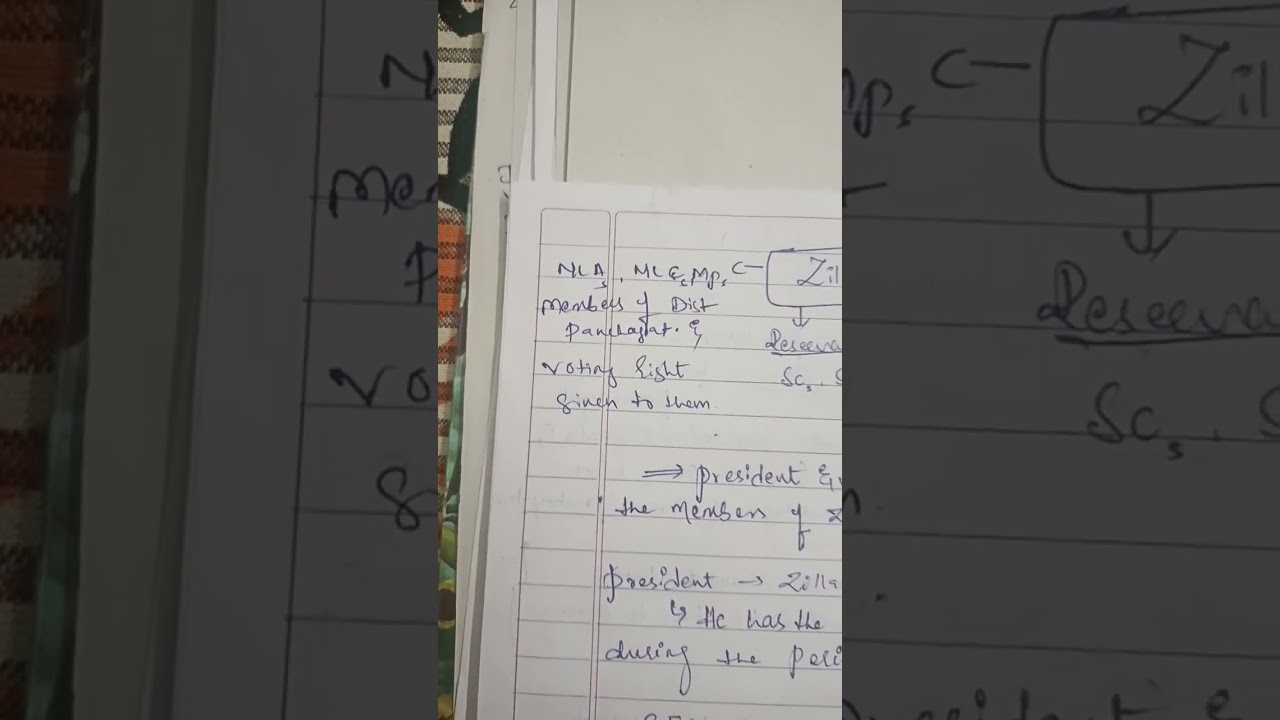 MLAs, MLCs, Mps, Zil
members of Dist
Panchayat. &
Reserva
voting right
Scs, S
given to them.
⇒ president &
the members of Z
president → Zilla
↳ He has the
during the peri